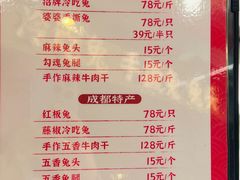 招牌冷吃兔 78元/斤
婆婆手撕兔 78元/只
39元/半只
麻辣兔头 15元/个
勾魂兔腿 15元/个
手作麻辣牛肉干 128元/斤
成都特产
红板兔 78元/只
藤椒冷吃兔 78元/斤
手作五香牛肉干 128元/斤
五香兔头 15元/个
五香兔腿 15元/个